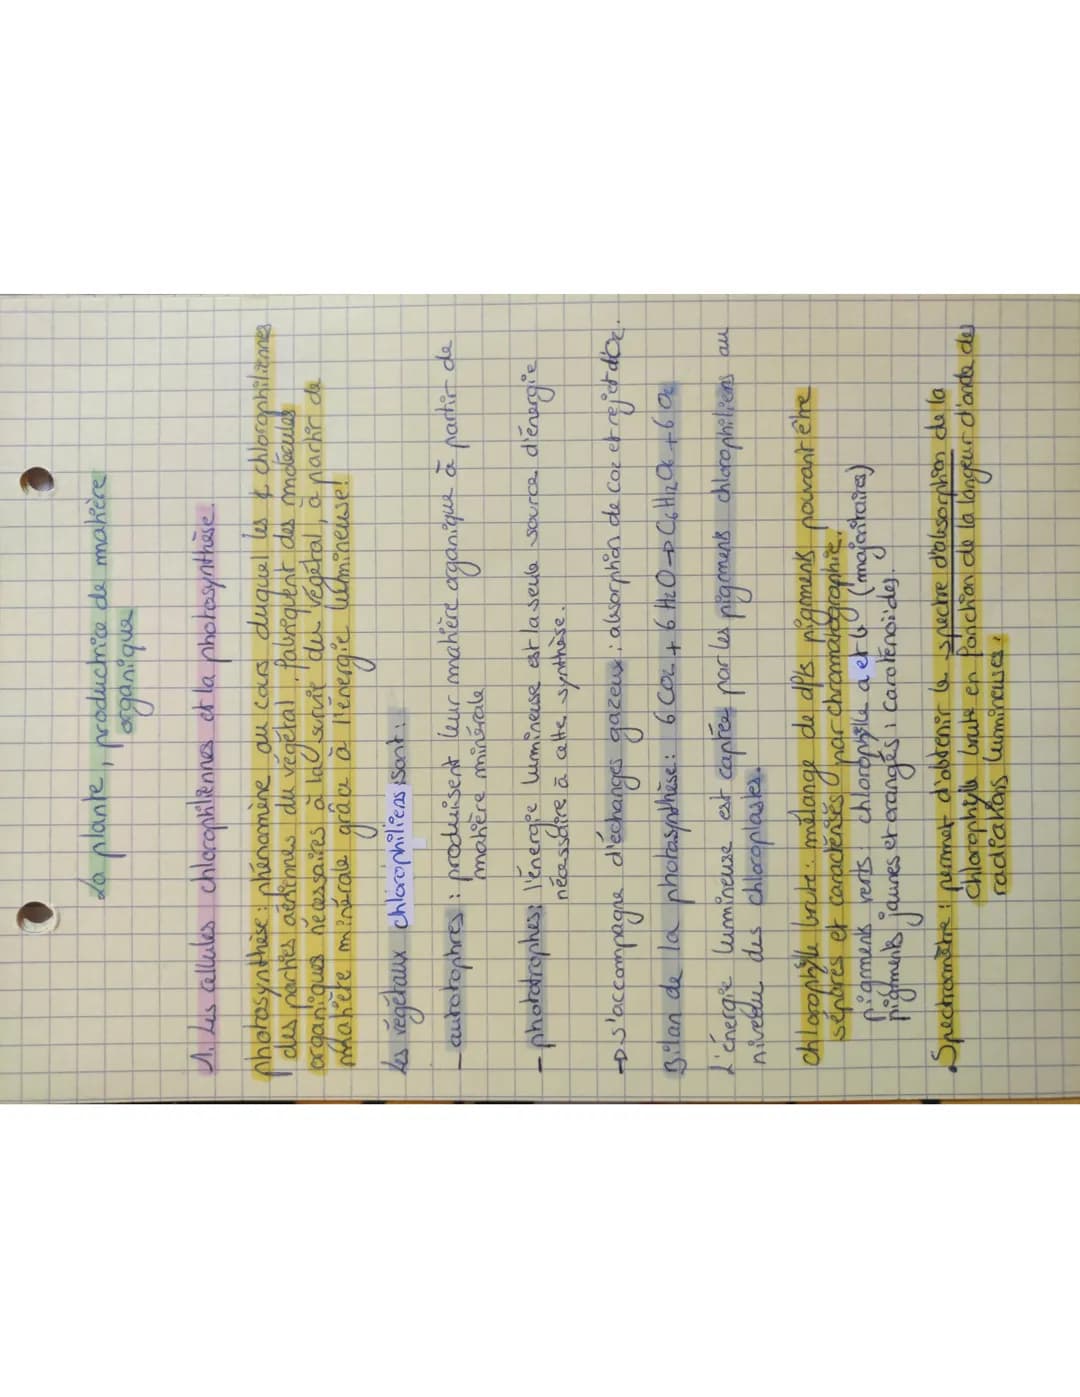 La plante, productrice de matière
organique
1. Les cellules chlorophiliennes et la photosynthèse.
photosynthèse: phénomène au cours duquel les ¢ chlorophiliennes
des parties aériennes du végétal fabriquent des molécules
organiques nécessaires à la survie du végétal, à partir de
matière minérale grâce à l'énergie lumineuse!
Les végétaux chlorophiliens sont:
- autotrophes : produisent leur matière organique à partir de
matière minérale
- phototrophes: l'énergie lumineuse est la seule source d'énergie
nécessaire à cette synthèse.
→ s'accompagne d'échanges gazeux : absorption de CO2 et rejet d'O2.
Bilan de la photosynthèse: 6 CO2 + 6 H2O → C6H12O6 + 6 O2
L'énergie lumineuse est captée par les pigments chlorophiliens au
niveau des chloroplastes.
chlorophylle brute: mélange de dfts pigments pouvant être
séparés et caractérisés par chromatographie!
pigments verts: chlorophylle a et b (majoritaires)
pigments jaunes et orangés: caroténoïdes.
• Spectromètre : permet d'obtenir le spectre d'absorption de la
chlorophylle brute en fonction de la longeur d'onde des
radiations lumineuses.